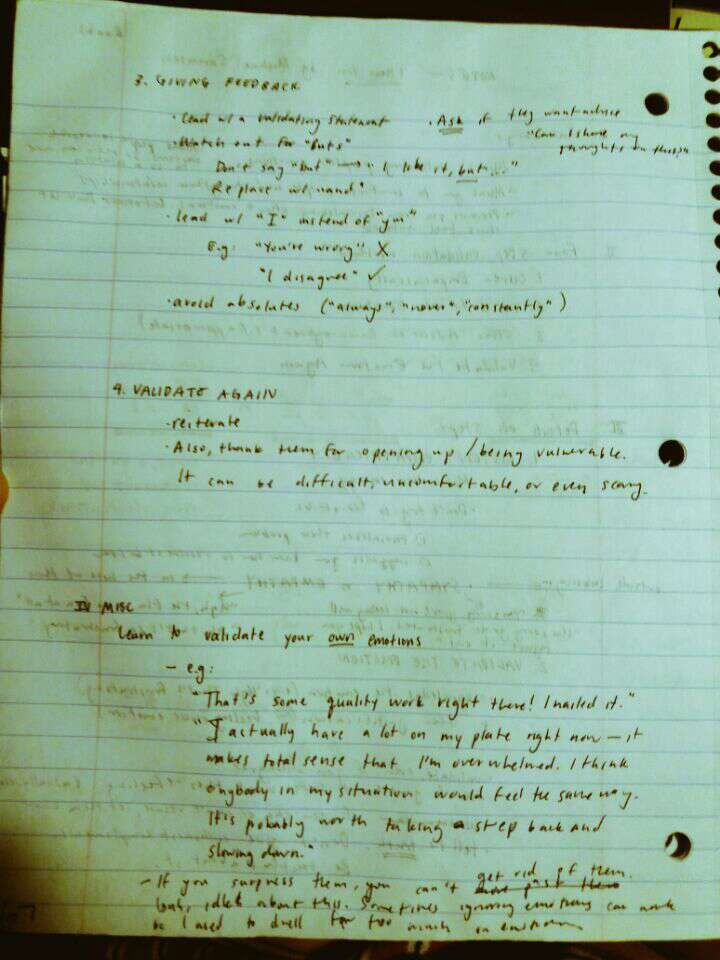 3. GIVING FEEDBACK
· Lead w/ a validating statement
· Ask if they want advice
"Can I share my thoughts on this?"
· Watch out for "Buts"
Don't say "But" "I like it, but..."
Replace w/ "and"
· lead w/ "I" instead of "you"
E.g: "You're wrong" X
"I disagree" ✓
· avoid absolutes ("always", "never", "constantly")
4. VALIDATE AGAIN
· reiterate
· Also, thank them for opening up / being vulnerable.
It can be difficult, uncomfortable, or even scary.
IV MISC
Learn to validate your own emotions
- e.g:
"That's some quality work right there! I nailed it."
"I actually have a lot on my plate right now — it
makes total sense that I'm overwhelmed. I think
anybody in my situation would feel the same way.
It's probably worth taking a step back and
slowing down."
- If you suppress them, you can't get rid of them.
about this. Sometimes ignoring emotions can work
bc I used to dwell too much on emotions